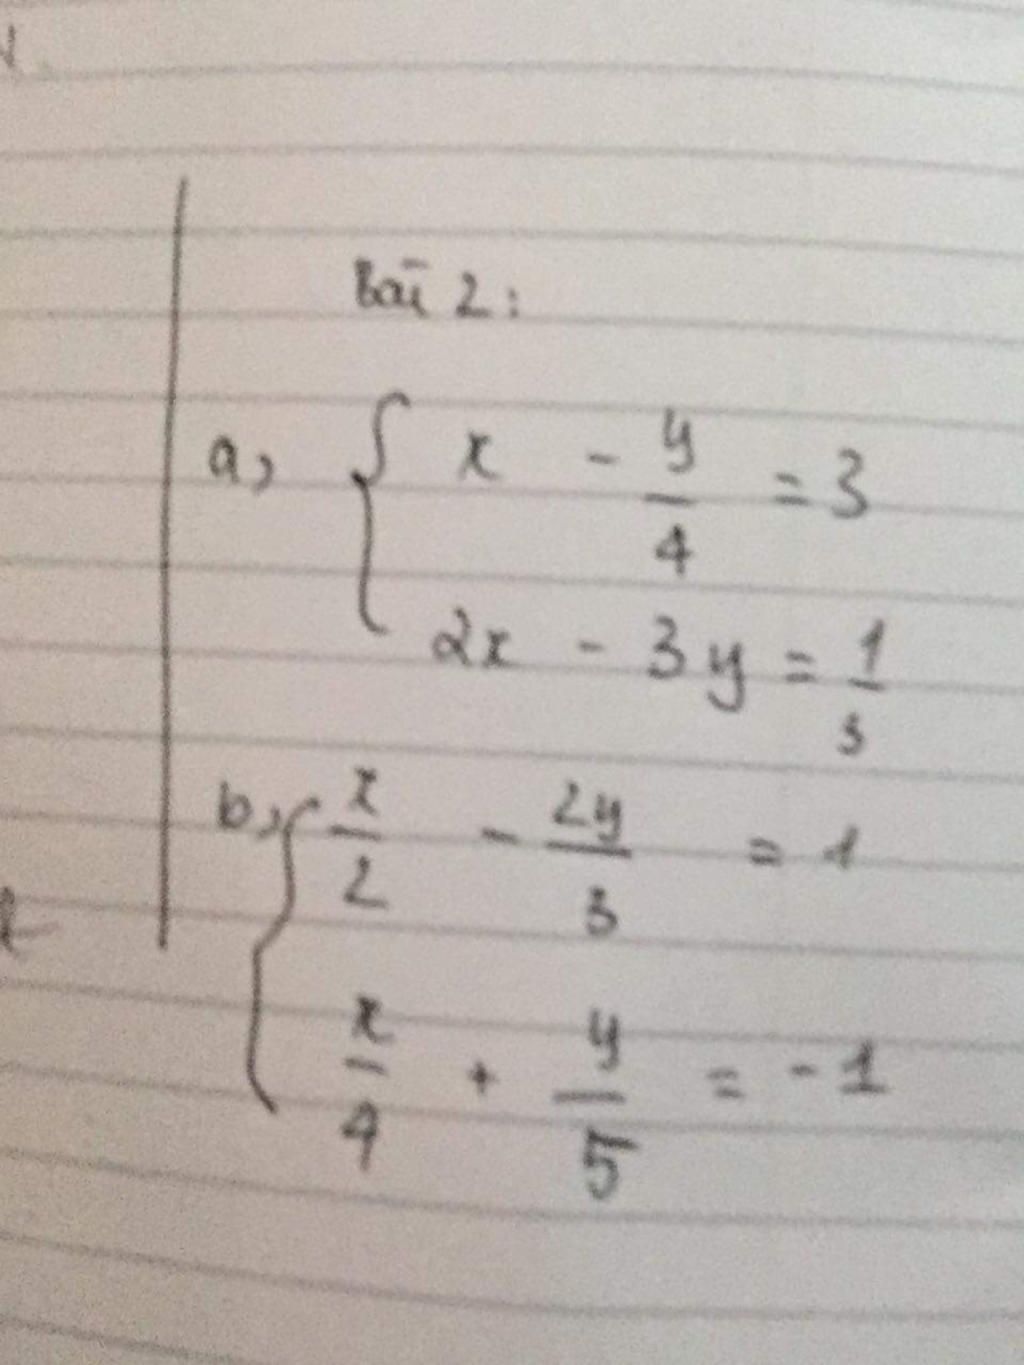 Bài 2:
a, { x - y/4 = 3
2x - 3y = 1/3
b, { x/2 - 2y/3 = 1
x/4 + y/5 = -1